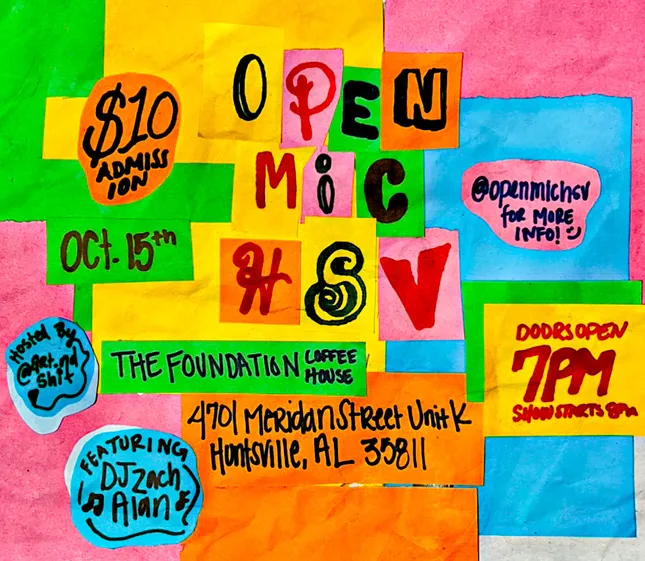 OPEN
MiC
HSV
$10
ADMISS
ION
OCT. 15th
@openmichsv
FOR MORE
INFO!
DOORS OPEN
7PM
SHOW STARTS 8PM
THE FOUNDATION COFFEE
HOUSE
4701 Meridan Street Unit K
Huntsville, AL 35811
Hosted By
@Art.nd
Shit
FEATURING
DJ Zach
Alan